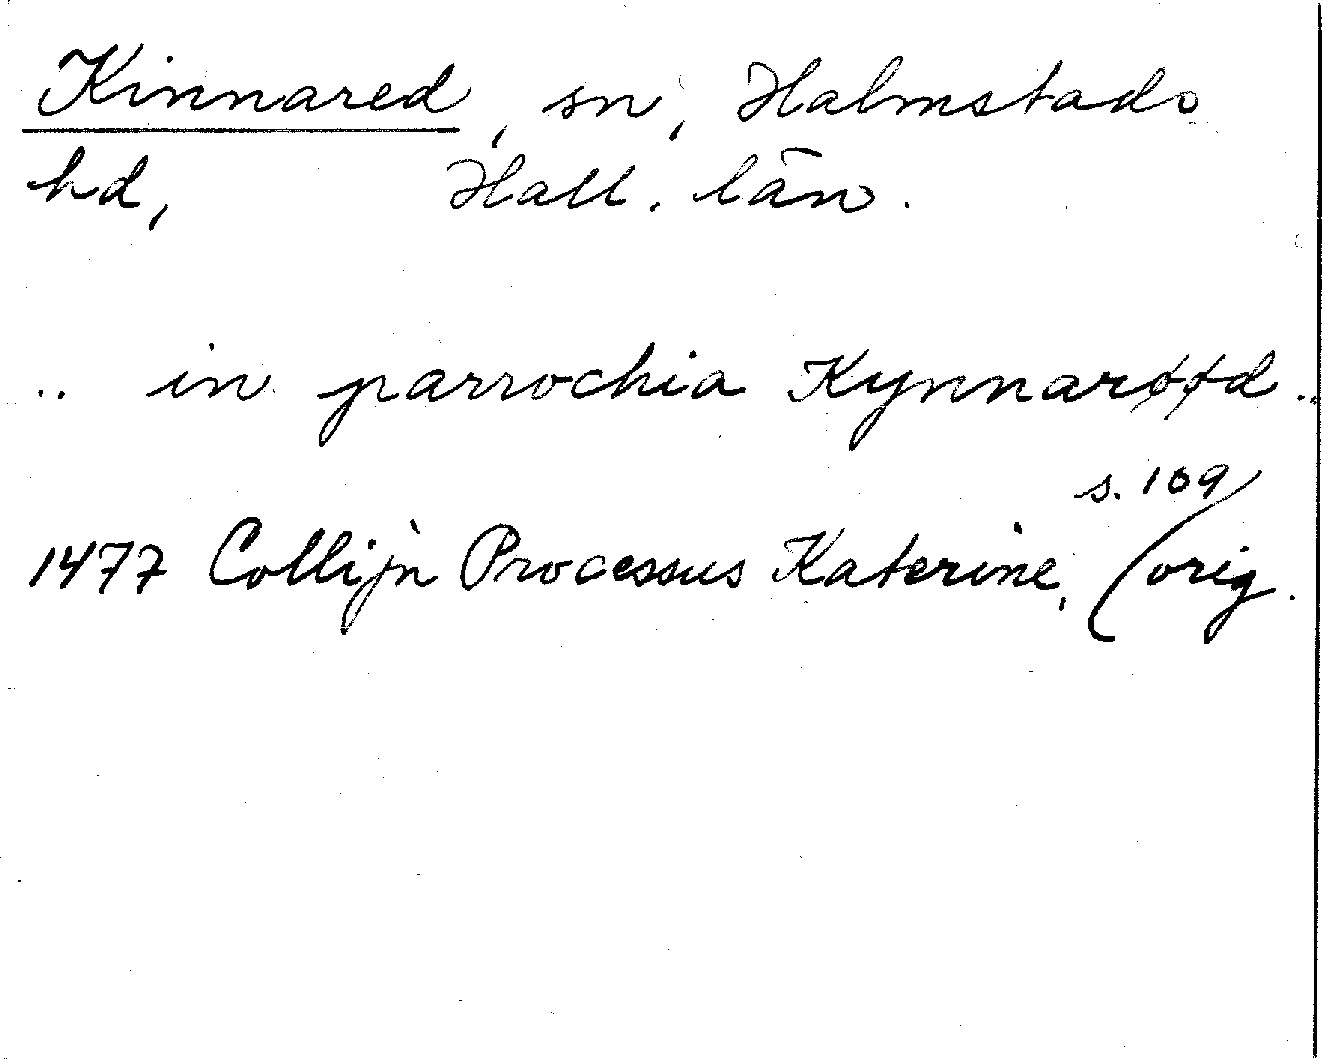 Kinnared, sn, Halmstads
hd, Hall. län.
.. in parrochia Kynnarøød ..
s. 109
1477 Collijn Processus Katerine, (orig.